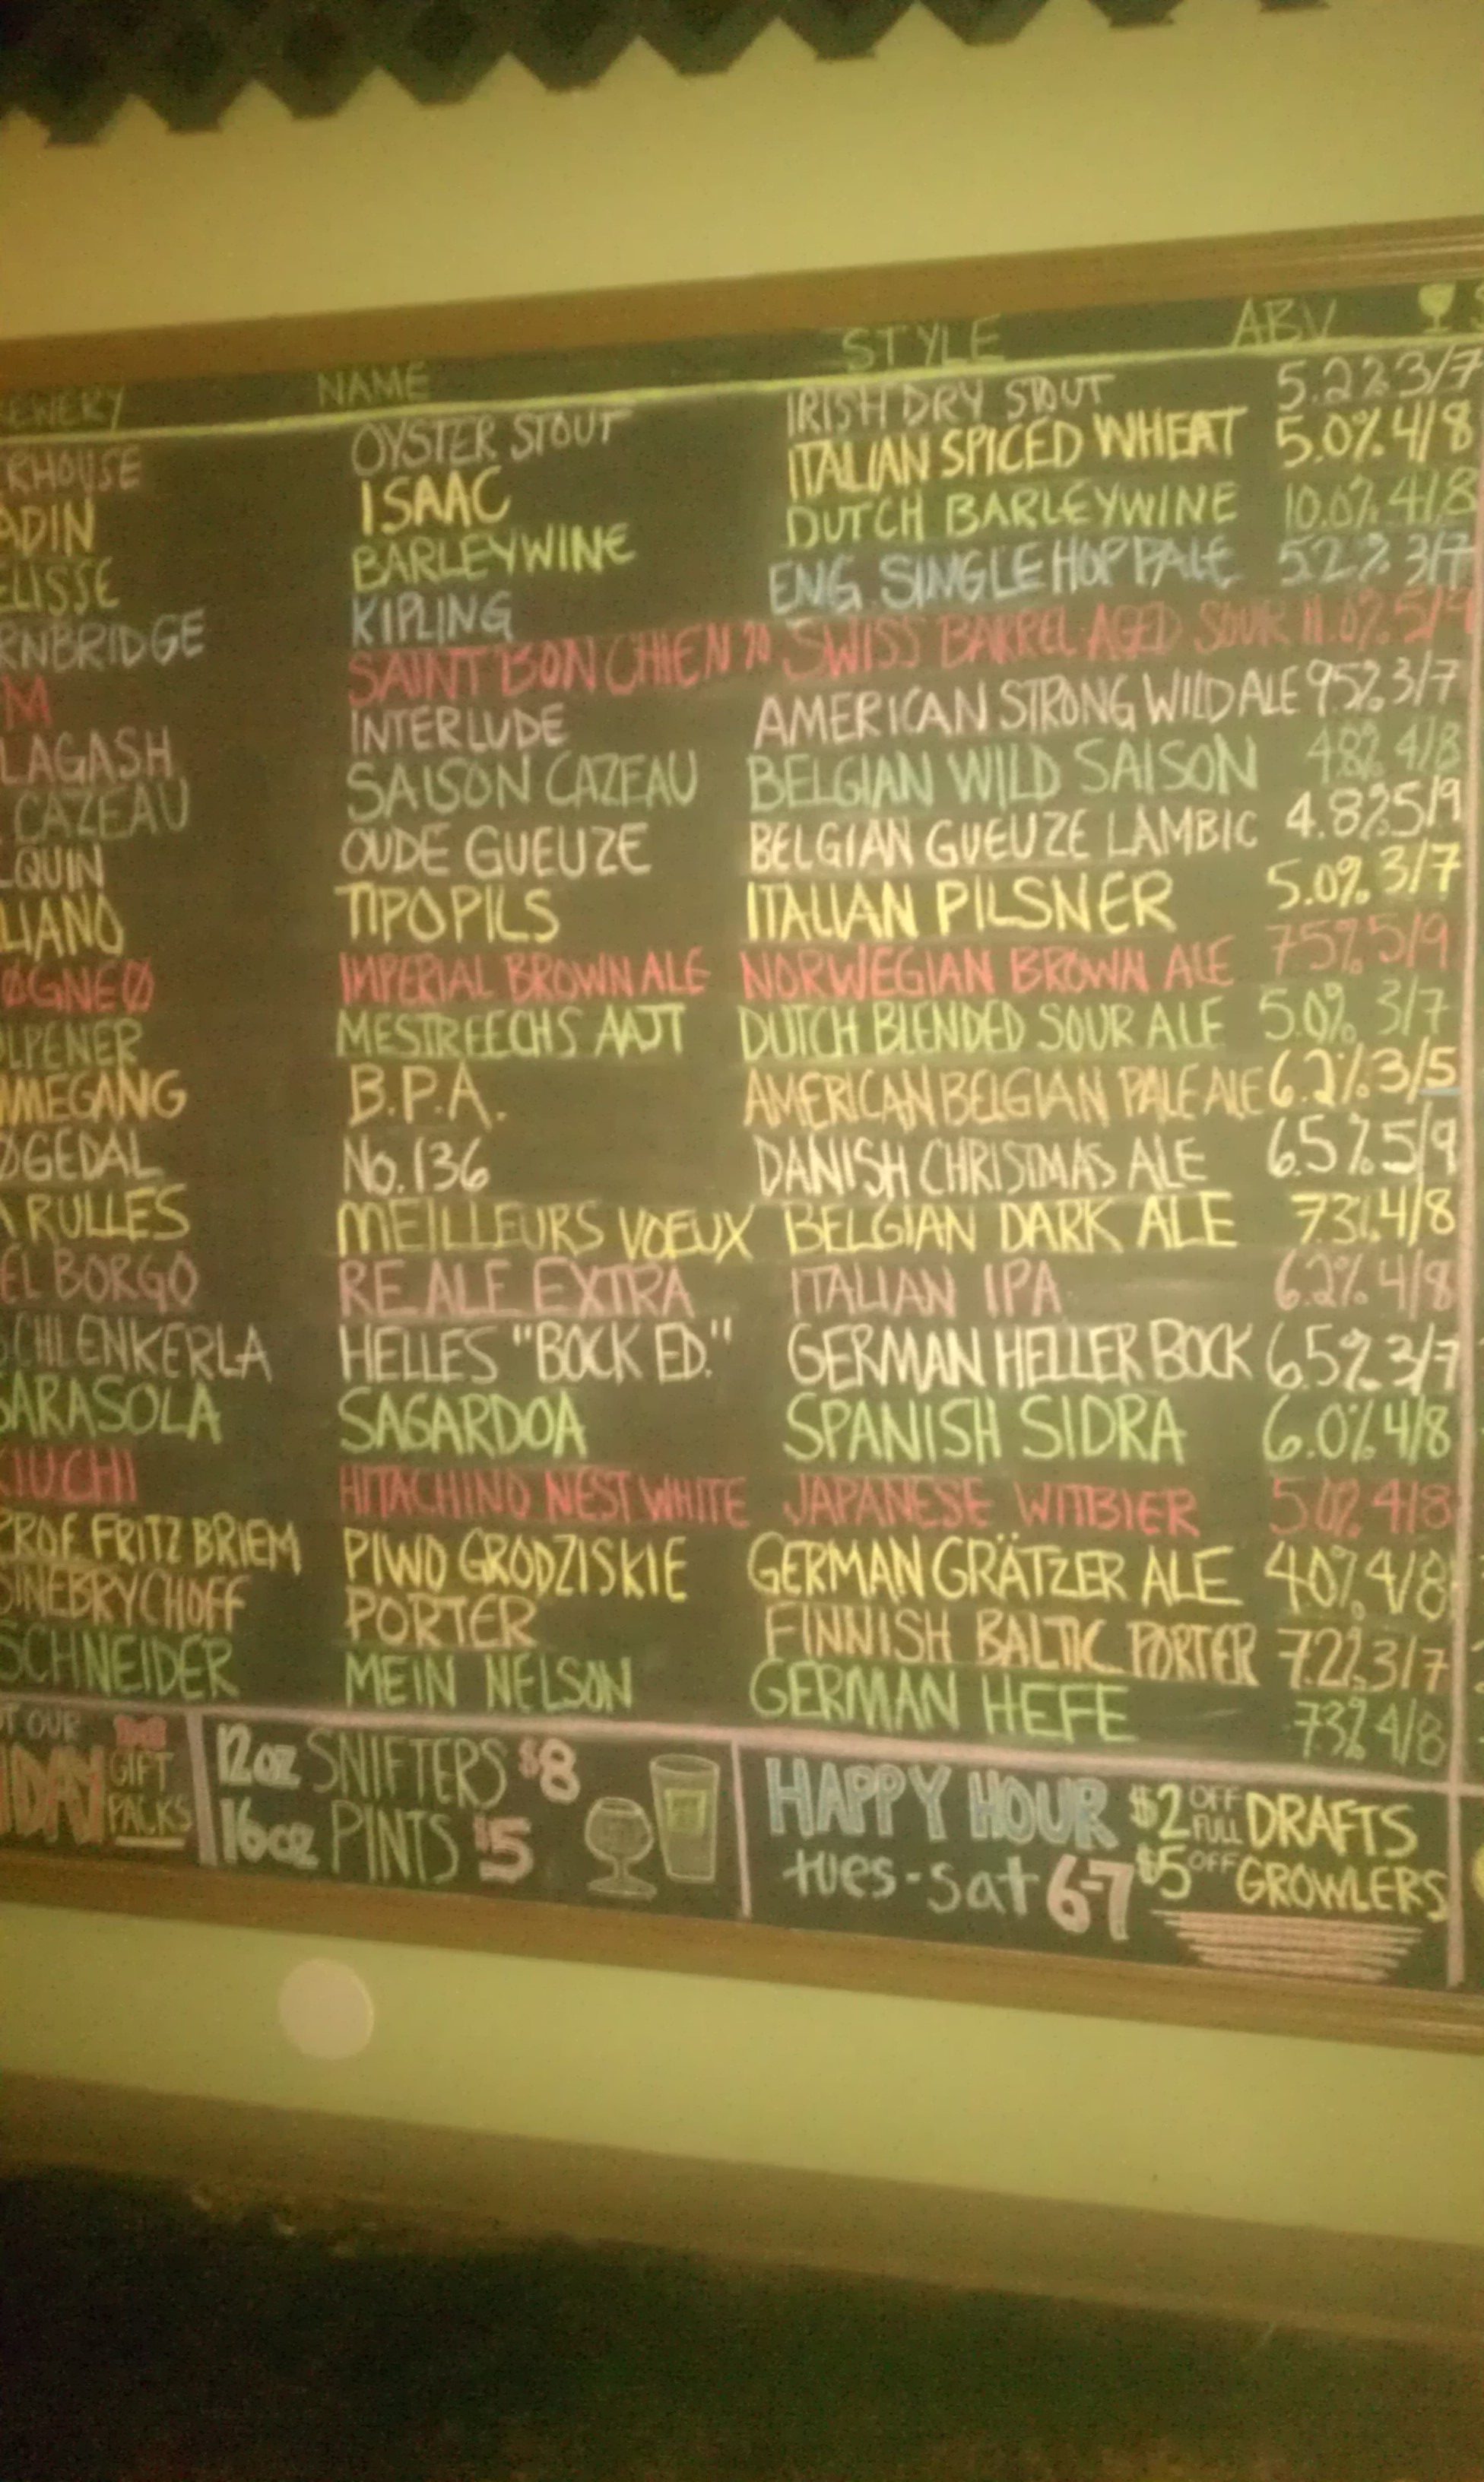 EWERY NAME STYLE ABV
RHOUSE OYSTER STOUT IRISH DRY STOUT 5.2% 3/7
ADIN ISAAC ITALIAN SPICED WHEAT 5.0% 4/8
ELISSE BARLEYWINE DUTCH BARLEYWINE 10.0% 4/8
RNBRIDGE KIPLING ENG. SINGLE HOP PALE 5.2% 3/7
M SAINT BON CHIEN SWISS BARREL-AGED SOUR 11.0% 5/9
LAGASH INTERLUDE AMERICAN STRONG WILD ALE 9.5% 3/7
CAZEAU SAISON CAZEAU BELGIAN WILD SAISON 4.8% 4/8
LQUIN OUDE GUEUZE BELGIAN GUEUZE LAMBIC 4.8% 5/9
LIANO TIPOPILS ITALIAN PILSNER 5.0% 3/7
ØGNE Ø IMPERIAL BROWN ALE NORWEGIAN BROWN ALE 7.5% 5/9
ULPENER MESTREECHS AAJT DUTCH BLENDED SOUR ALE 5.0% 3/7
MMEGANG B.P.A. AMERICAN BELGIAN PALE ALE 6.2% 3/5
ØGEDAL No. 136 DANISH CHRISTMAS ALE 6.5% 5/9
A RULLES MEILLEURS VOEUX BELGIAN DARK ALE 7.3% 4/8
EL BORGO RE ALE EXTRA ITALIAN IPA 6.2% 4/8
SCHLENKERLA HELLES "BOCK ED." GERMAN HELLER BOCK 6.5% 3/7
SARASOLA SAGARDOA SPANISH SIDRA 6.0% 4/8
KIUCHI HITACHINO NEST WHITE JAPANESE WITBIER 5.0% 4/8
PROF. FRITZ BRIEM PIWO GRODZISKIE GERMAN GRÄTZER ALE 4.0% 4/8
SINEBRYCHOFF PORTER FINNISH BALTIC PORTER 7.2% 3/7
SCHNEIDER MEIN NELSON GERMAN HEFE 7.3% 4/8
T OUR
IDAY GIFT PACKS
12oz SNIFTERS $8
16oz PINTS $5
HAPPY HOUR
tues-sat 6-7
$2 OFF FULL DRAFTS
$5 OFF GROWLERS